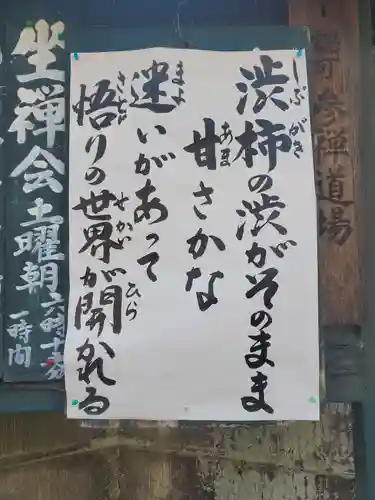 参禅道場
渋柿の渋がそのまま
しぶがき
甘さかな
あま
迷いがあって
まよ
悟りの世界が開かれる
さと せかい ひら
坐禅会 土曜朝六時十五分
一時間